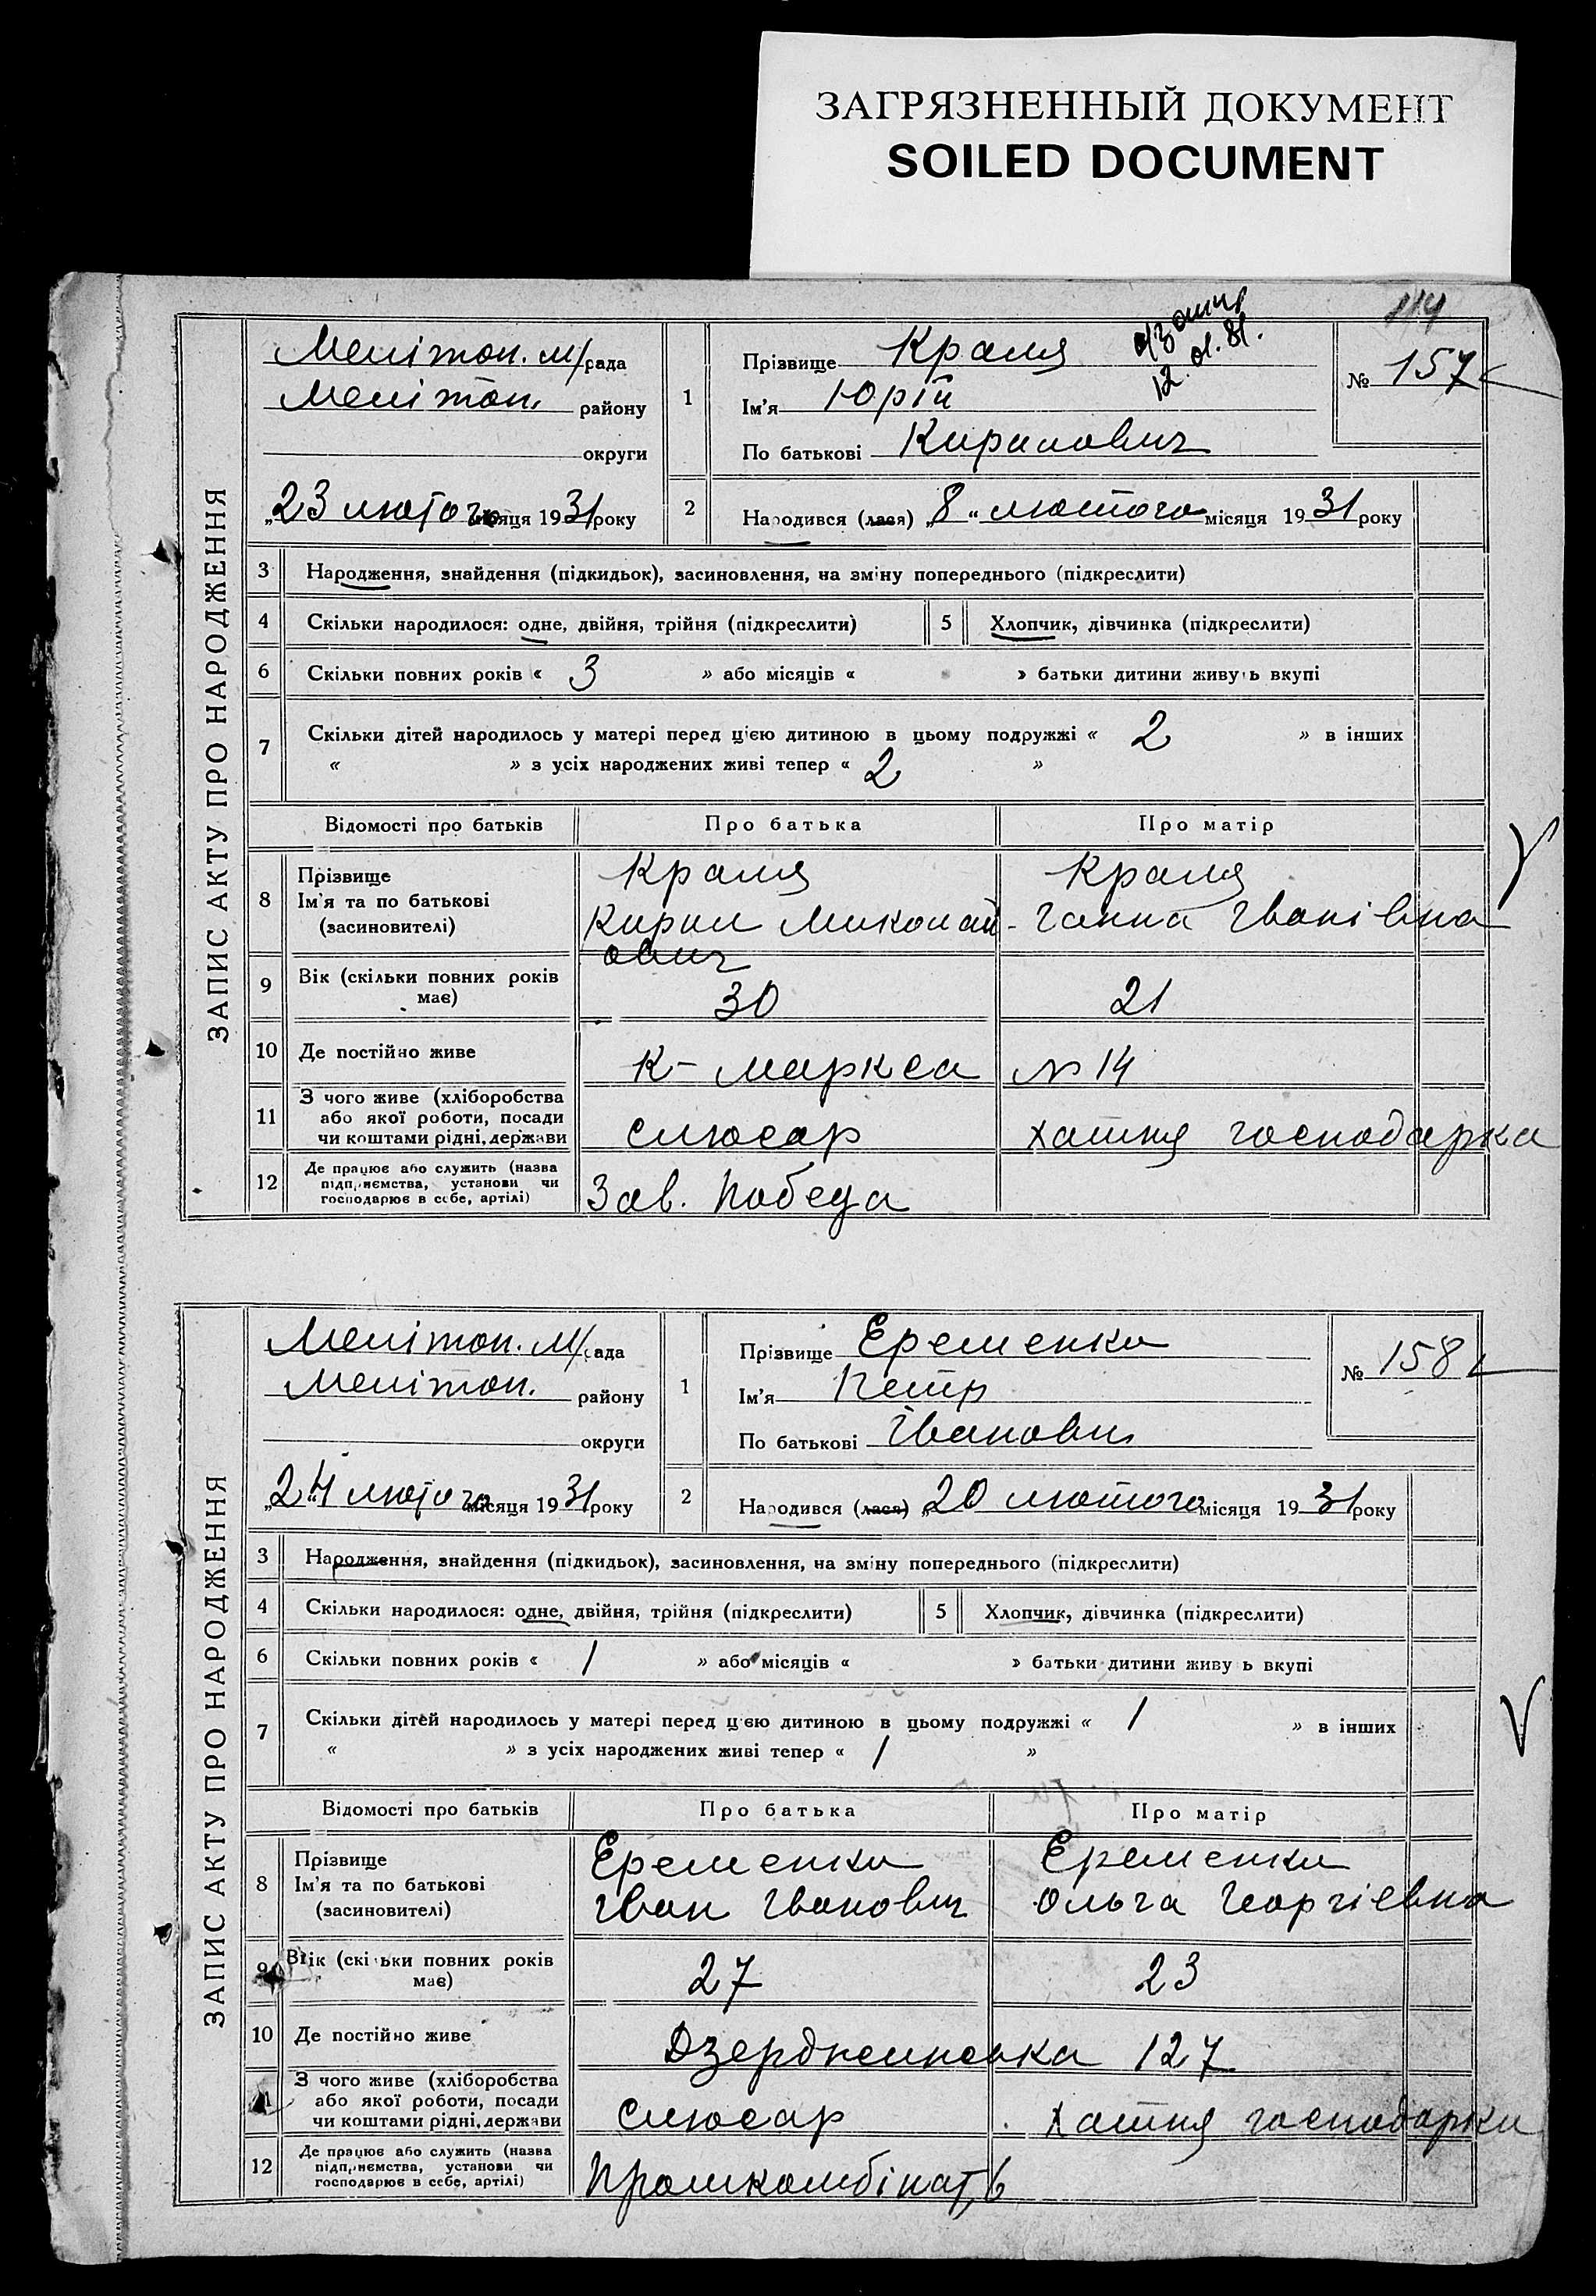 ЗАГРЯЗНЕННЫЙ ДОКУМЕНТ
SOILED DOCUMENT
ЗАПИС АКТУ ПРО НАРОДЖЕННЯ
Мелітоп. м/рада
Мелітоп. району
округи
„23 лютого місяця 1931 року
1
Прізвище Краля
12.01.81.
Ім'я Юрій
По батькові Кирилович
№ 157
2
Народився (лася) „8“ лютого місяця 1931 року
3 Народження, знайдення (підкидьок), засиновлення, на зміну попереднього (підкреслити)
4 Скільки народилося: одне, двійня, трійня (підкреслити) 5 Хлопчик, дівчинка (підкреслити)
6 Скільки повних років « 3 » або місяців « » батьки дитини живуть вкупі
7 Скільки дітей народилось у матері перед цією дитиною в цьому подружжі « 2 » в інших
« » з усіх народжених живі тепер « 2 »
Відомості про батьків Про батька Про матір
8 Прізвище Ім'я та по батькові (засиновителі)
Краля Кирил Миколайович
Краля Ганна Іванівна
9 Вік (скільки повних років має) 30 21
10 Де постійно живе К-Маркса №14
11 З чого живе (хліборобства або якої роботи, посади чи коштами рідні, держави слюсар хатня господарка
12 Де працює або служить (назва підприємства, установи чи господарює в себе, артілі) Зав. Победа
ЗАПИС АКТУ ПРО НАРОДЖЕННЯ
Мелітоп. м/рада
Мелітоп. району
округи
„24 лютого місяця 1931 року
1
Прізвище Еременко
Ім'я Петр
По батькові Іванович
№ 158
2
Народився (лася) „20 лютого місяця 1931 року
3 Народження, знайдення (підкидьок), засиновлення, на зміну попереднього (підкреслити)
4 Скільки народилося: одне, двійня, трійня (підкреслити) 5 Хлопчик, дівчинка (підкреслити)
6 Скільки повних років « 1 » або місяців « » батьки дитини живу ь вкупі
7 Скільки дітей народилось у матері перед цією дитиною в цьому подружжі « 1 » в інших
« » з усіх народжених живі тепер « 1 »
Відомості про батьків Про батька Про матір
8 Прізвище Ім'я та по батькові (засиновителі)
Еременко Іван Іванович
Еременко Ольга Георгіевна
9 Вік (скільки повних років має) 27 23
10 Де постійно живе Дзержинська 127
11 З чого живе (хліборобства або якої роботи, посади чи коштами рідні, держави слюсар хатня господарка
12 Де працює або служить (назва підприємства, установи чи господарює в себе, артілі) Промкомбінат,